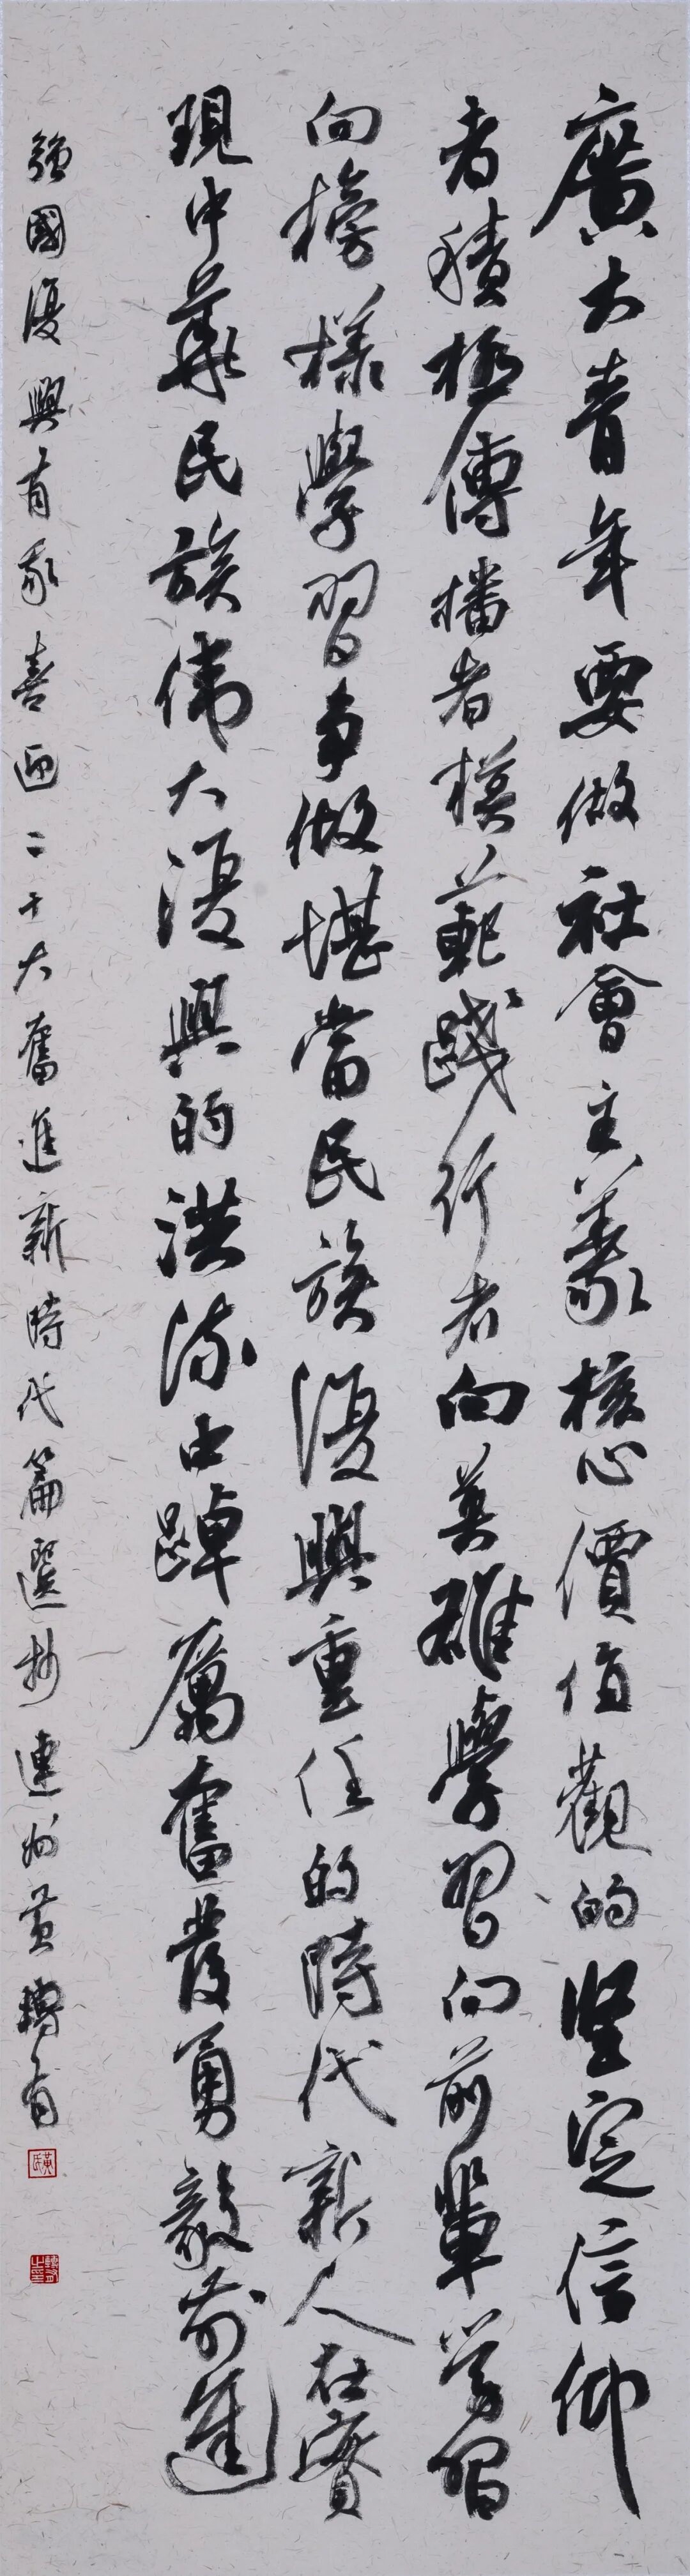 廣大青年要做社會主義核心價值觀的堅定信仰
者積極傳播者模範踐行者向英雄學習向前輩學習
向榜樣學習爭做堪當民族復興重任的時代新人在實
現中華民族偉大復興的洪流中踔厲奮發勇毅前進
強國復興有我喜迎二十大奮進新時代篇選抄連州黃轉有
黃氏